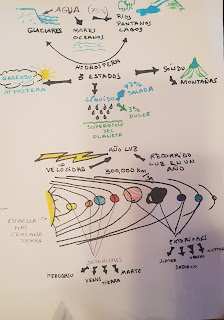 AGUA
75%
RIOS
PANTANOS
LAGOS
GLACIARES
MARES
OCEANOS
HIDROSFERA
GASEOSO
3
ESTADOS
SOLIDO
MONTAÑAS
LIQUIDO
97%
SALADA
3%
DULCE
SUPERFICIE
DEL
PLANETA
AÑO LUZ
RECORRIDO
LUZ EN UN
AÑO
VELOCIDAD
300,000 km
ESTRELLA
MAS
CERCANA
TIERRA
INTERIORES
MERCURIO
VENUS
TIERRA
MARTE
EXTERIORES
JUPITER
SATURNO
URANO
NEPTUNO